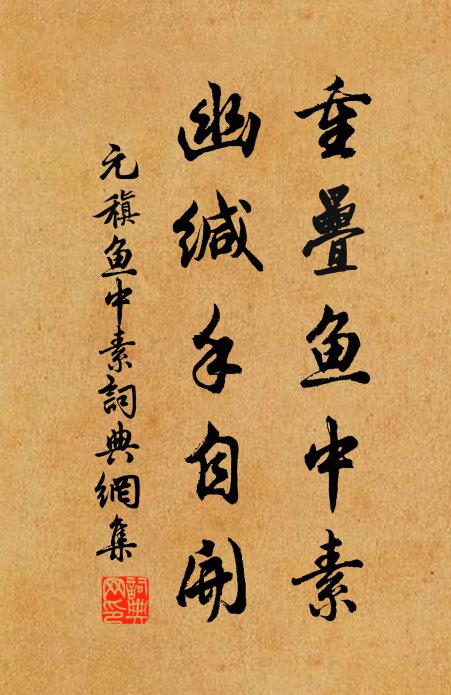 重疊魚中素
幽緘手自開
元稹魚中素詞典網集
詞典网印